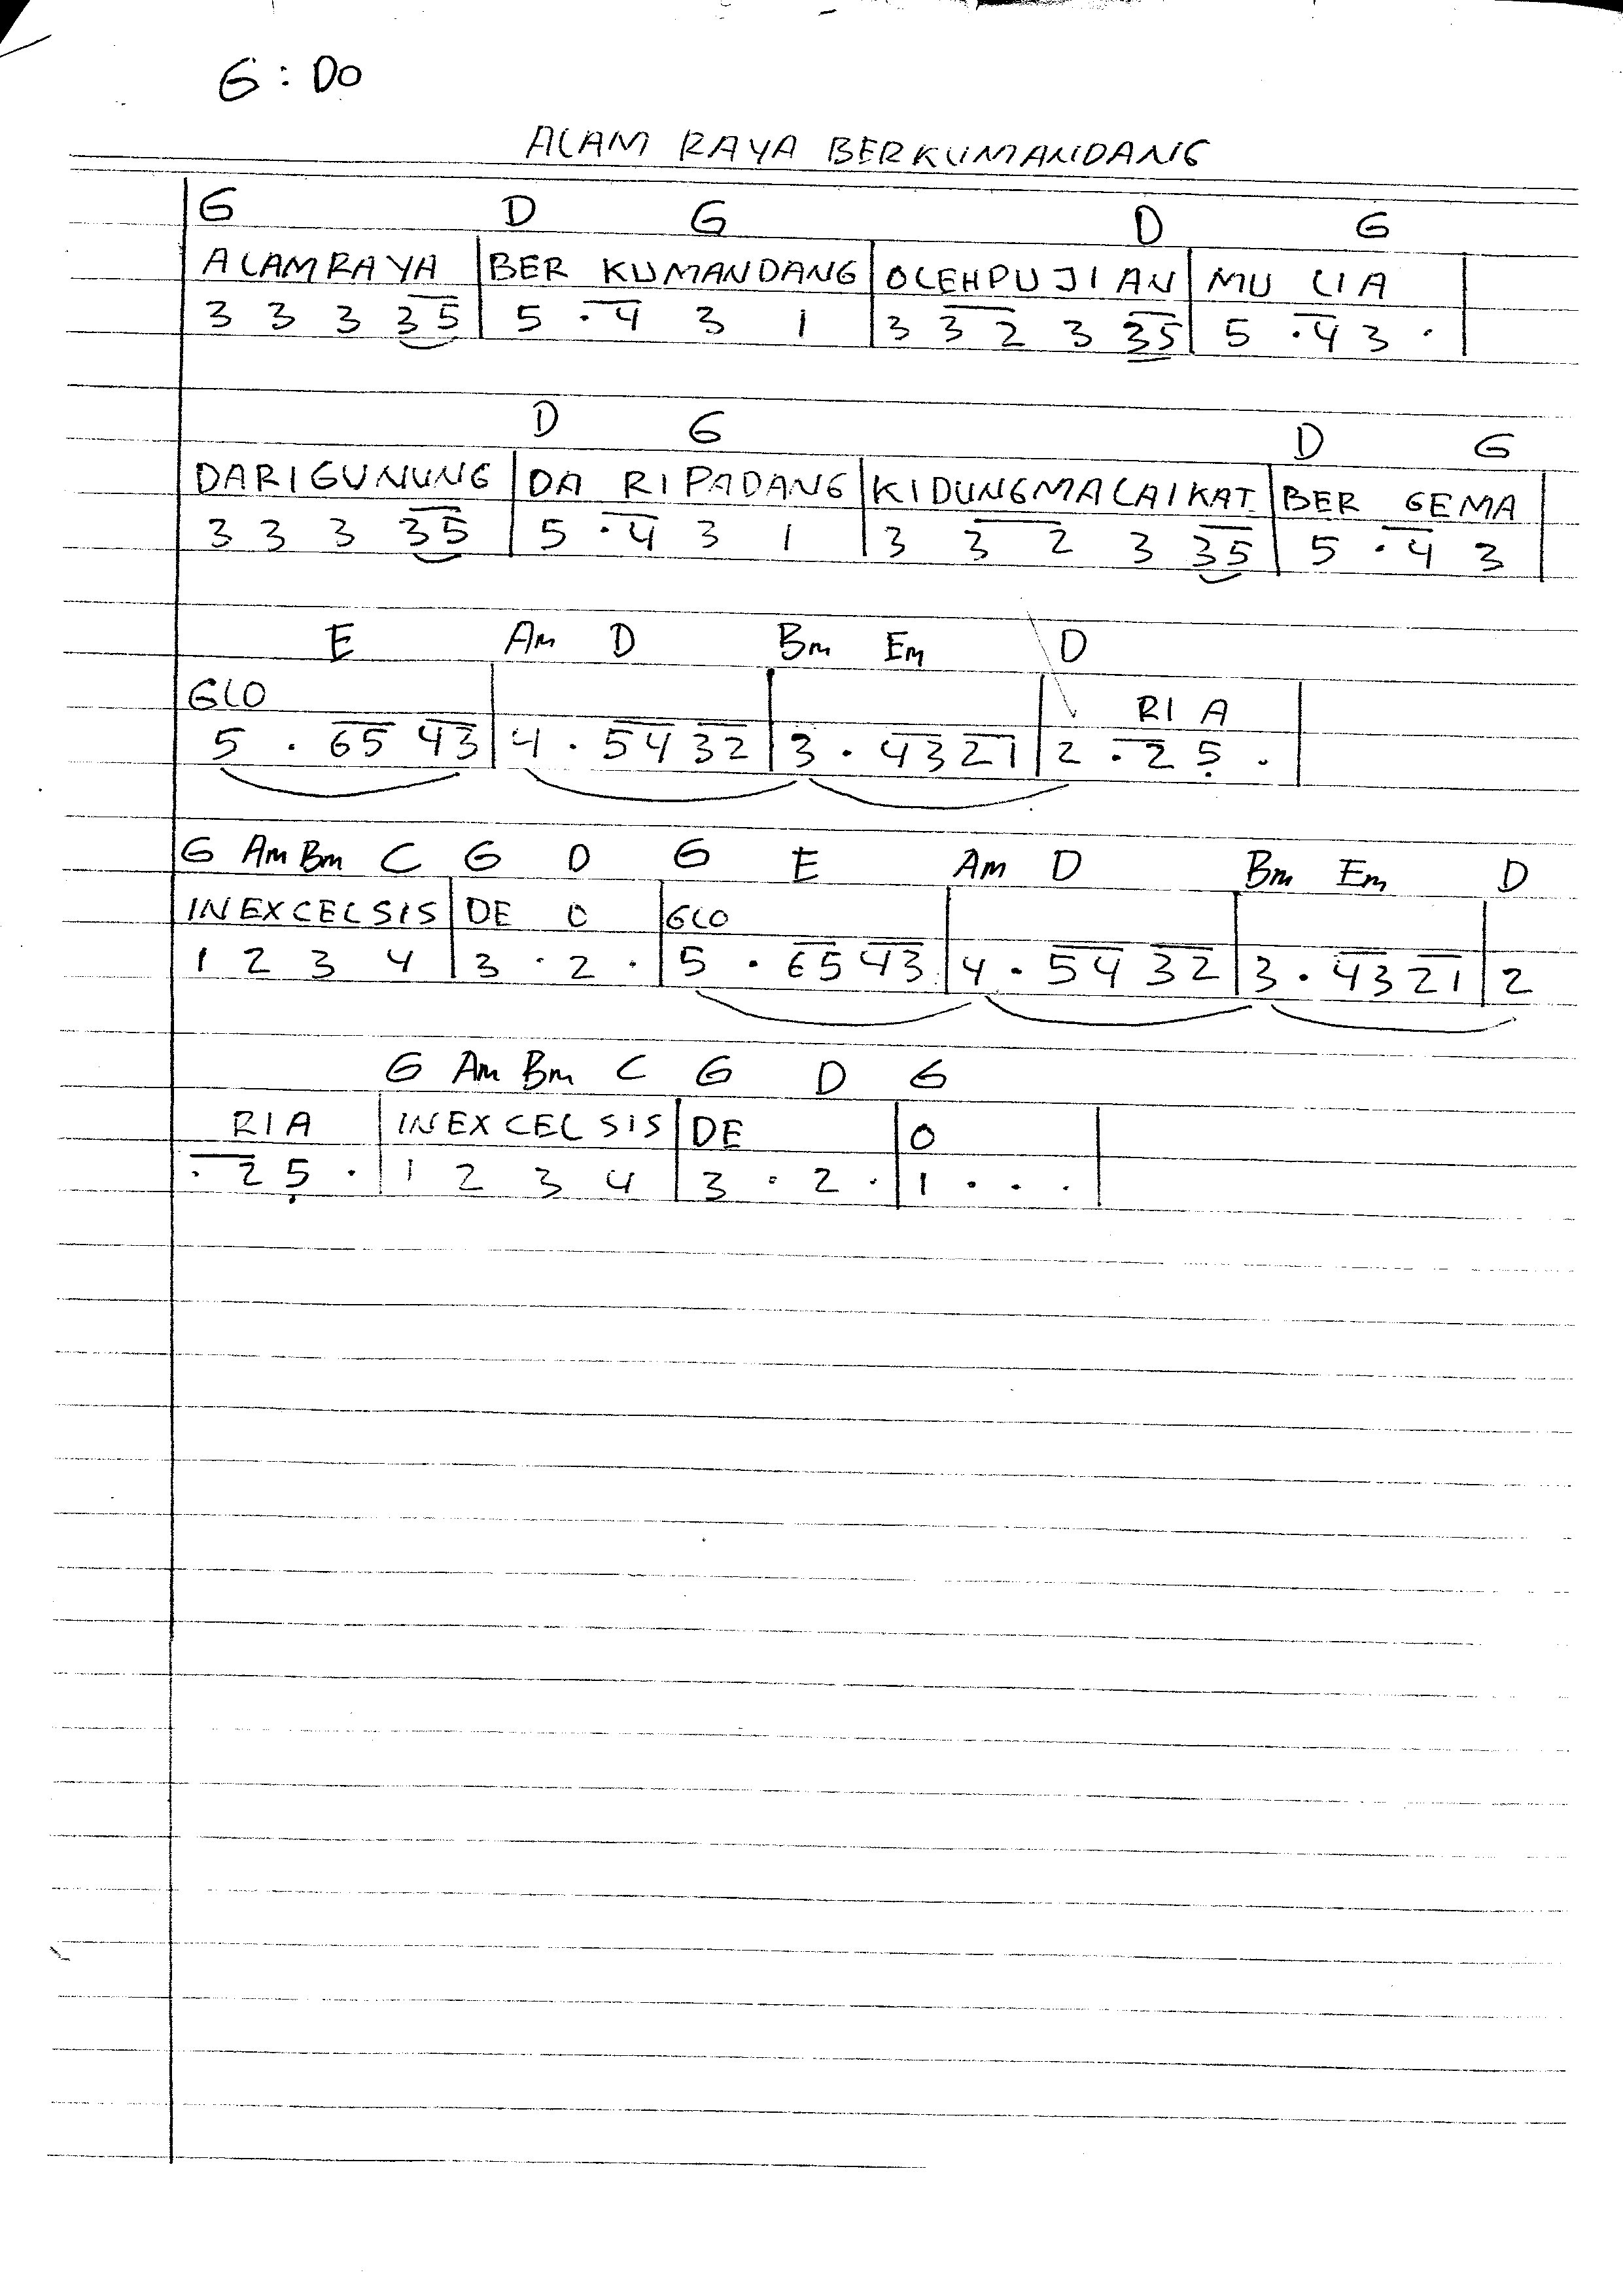 G : DO
ALAM RAYA BERKUMANDANG
G D G D G
ALAMRAYA | BER KUMANDANG | OLEHPUJIAN | MU LIA |
3 3 3 35 | 5 . 4 3 1 | 3 3 2 3 35 | 5 . 4 3 . |
D G D G
DARIGUNUNG | DA RIPADANG | KIDUNGMALAIKAT | BER GEMA |
3 3 3 35 | 5 . 4 3 1 | 3 3 2 3 35 | 5 . 4 3 |
E Am D Bm Em D
GLO | | | RI A |
5 . 65 43 | 4 . 54 32 | 3 . 43 21 | 2 . 2 5 . |
G Am Bm C G D G E Am D Bm Em D
INEXCELSIS | DE O | GLO | | |
1 2 3 4 | 3 . 2 . | 5 . 65 43 | 4 . 54 32 | 3 . 43 21 | 2
G Am Bm C G D G
RIA | INEXCELSIS | DE | O |
. 2 5 . | 1 2 3 4 | 3 . 2 . | 1 . . . |